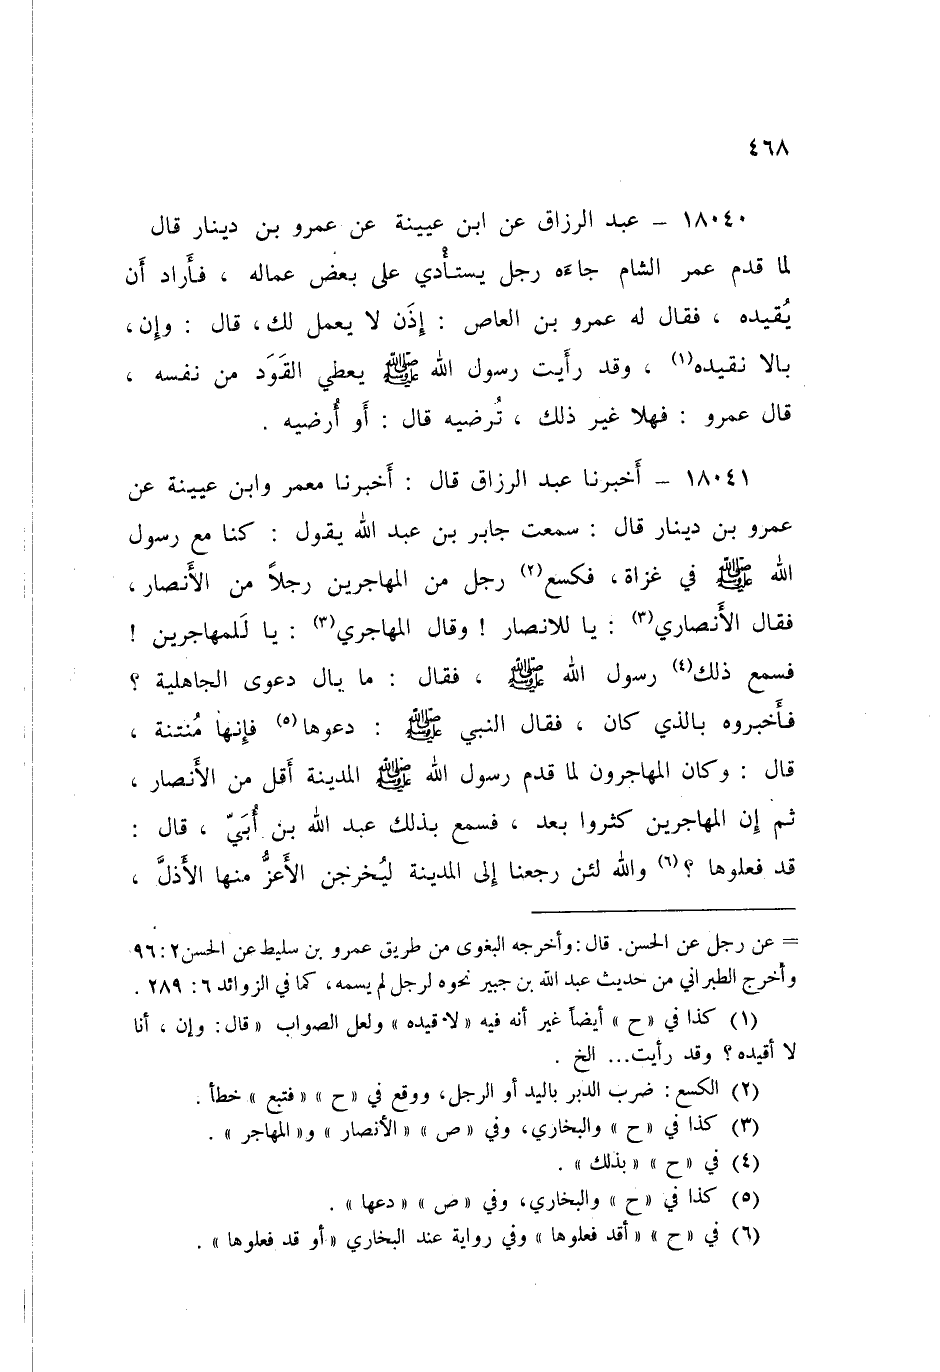 ٤٦٨
١٨٠٤٠ – عبد الرزاق عن ابن عيينة عن عمرو بن دينار قال
لما قدم عمر الشام جاءه رجل يستأدي على بعض عماله ، فأراد أن
يُقيده ، فقال له عمرو بن العاص : إذَن لا يعمل لك، قال : وإن،
بالا نقيده(١) ، وقد رأَيت رسول الله ﷺ يعطي القَوَد من نفسه ،
قال عمرو : فهلا غير ذلك ، تُرضيه قال : أَو أُرضيه .
١٨٠٤١ – أَخبرنا عبد الرزاق قال : أَخبرنا معمر وابن عيينة عن
عمرو بن دينار قال : سمعت جابر بن عبد الله يقول : كنا مع رسول
الله ﷺ في غزاة، فكسع(٢) رجل من المهاجرين رجلاً من الأَنصار،
فقال الأَنصاري(٣) : يا للانصار ! وقال المهاجري(٣) : يا لَلمهاجرين !
فسمع ذلك(٤) رسول الله ﷺ ، فقال : ما بال دعوى الجاهلية ؟
فأَخبروه بالذي كان ، فقال النبي ﷺ : دعوها(٥) فإنها مُنتنة ،
قال : وكان المهاجرون لما قدم رسول الله ﷺ المدينة أَقل من الأَنصار ،
ثم إن المهاجرين كثروا بعد ، فسمع بذلك عبد الله بن أُبَيّ ، قال :
قد فعلوها ؟(٦) والله لئن رجعنا إلى المدينة ليُخرجن الأَعزُّ منها الأَذلَّ ،
= عن رجل عن الحسن. قال: وأخرجه البغوى من طريق عمرو بن سليط عن الحسن ٢: ٩٦
وأخرج الطبراني من حديث عبد الله بن جبير نحوه لرجل لم يسمه، كما في الزوائد ٦: ٢٨٩ .
(١) كذا في «ح» أيضاً غير أنه فيه «لا قيده» ولعل الصواب «قال: وإن ، أنا
لا أقيده؟ وقد رأيت... الخ .
(٢) الكسع: ضرب الدبر باليد أو الرجل، ووقع في «ح» «فتبع» خطأ .
(٣) كذا في «ح» والبخاري، وفي «ص» «الأنصار» و«المهاجر» .
(٤) في «ح» «بذلك» .
(٥) كذا في «ح» والبخاري، وفي «ص» «دعها» .
(٦) في «ح» «أقد فعلوها» وفي رواية عند البخاري «أو قد فعلوها» .